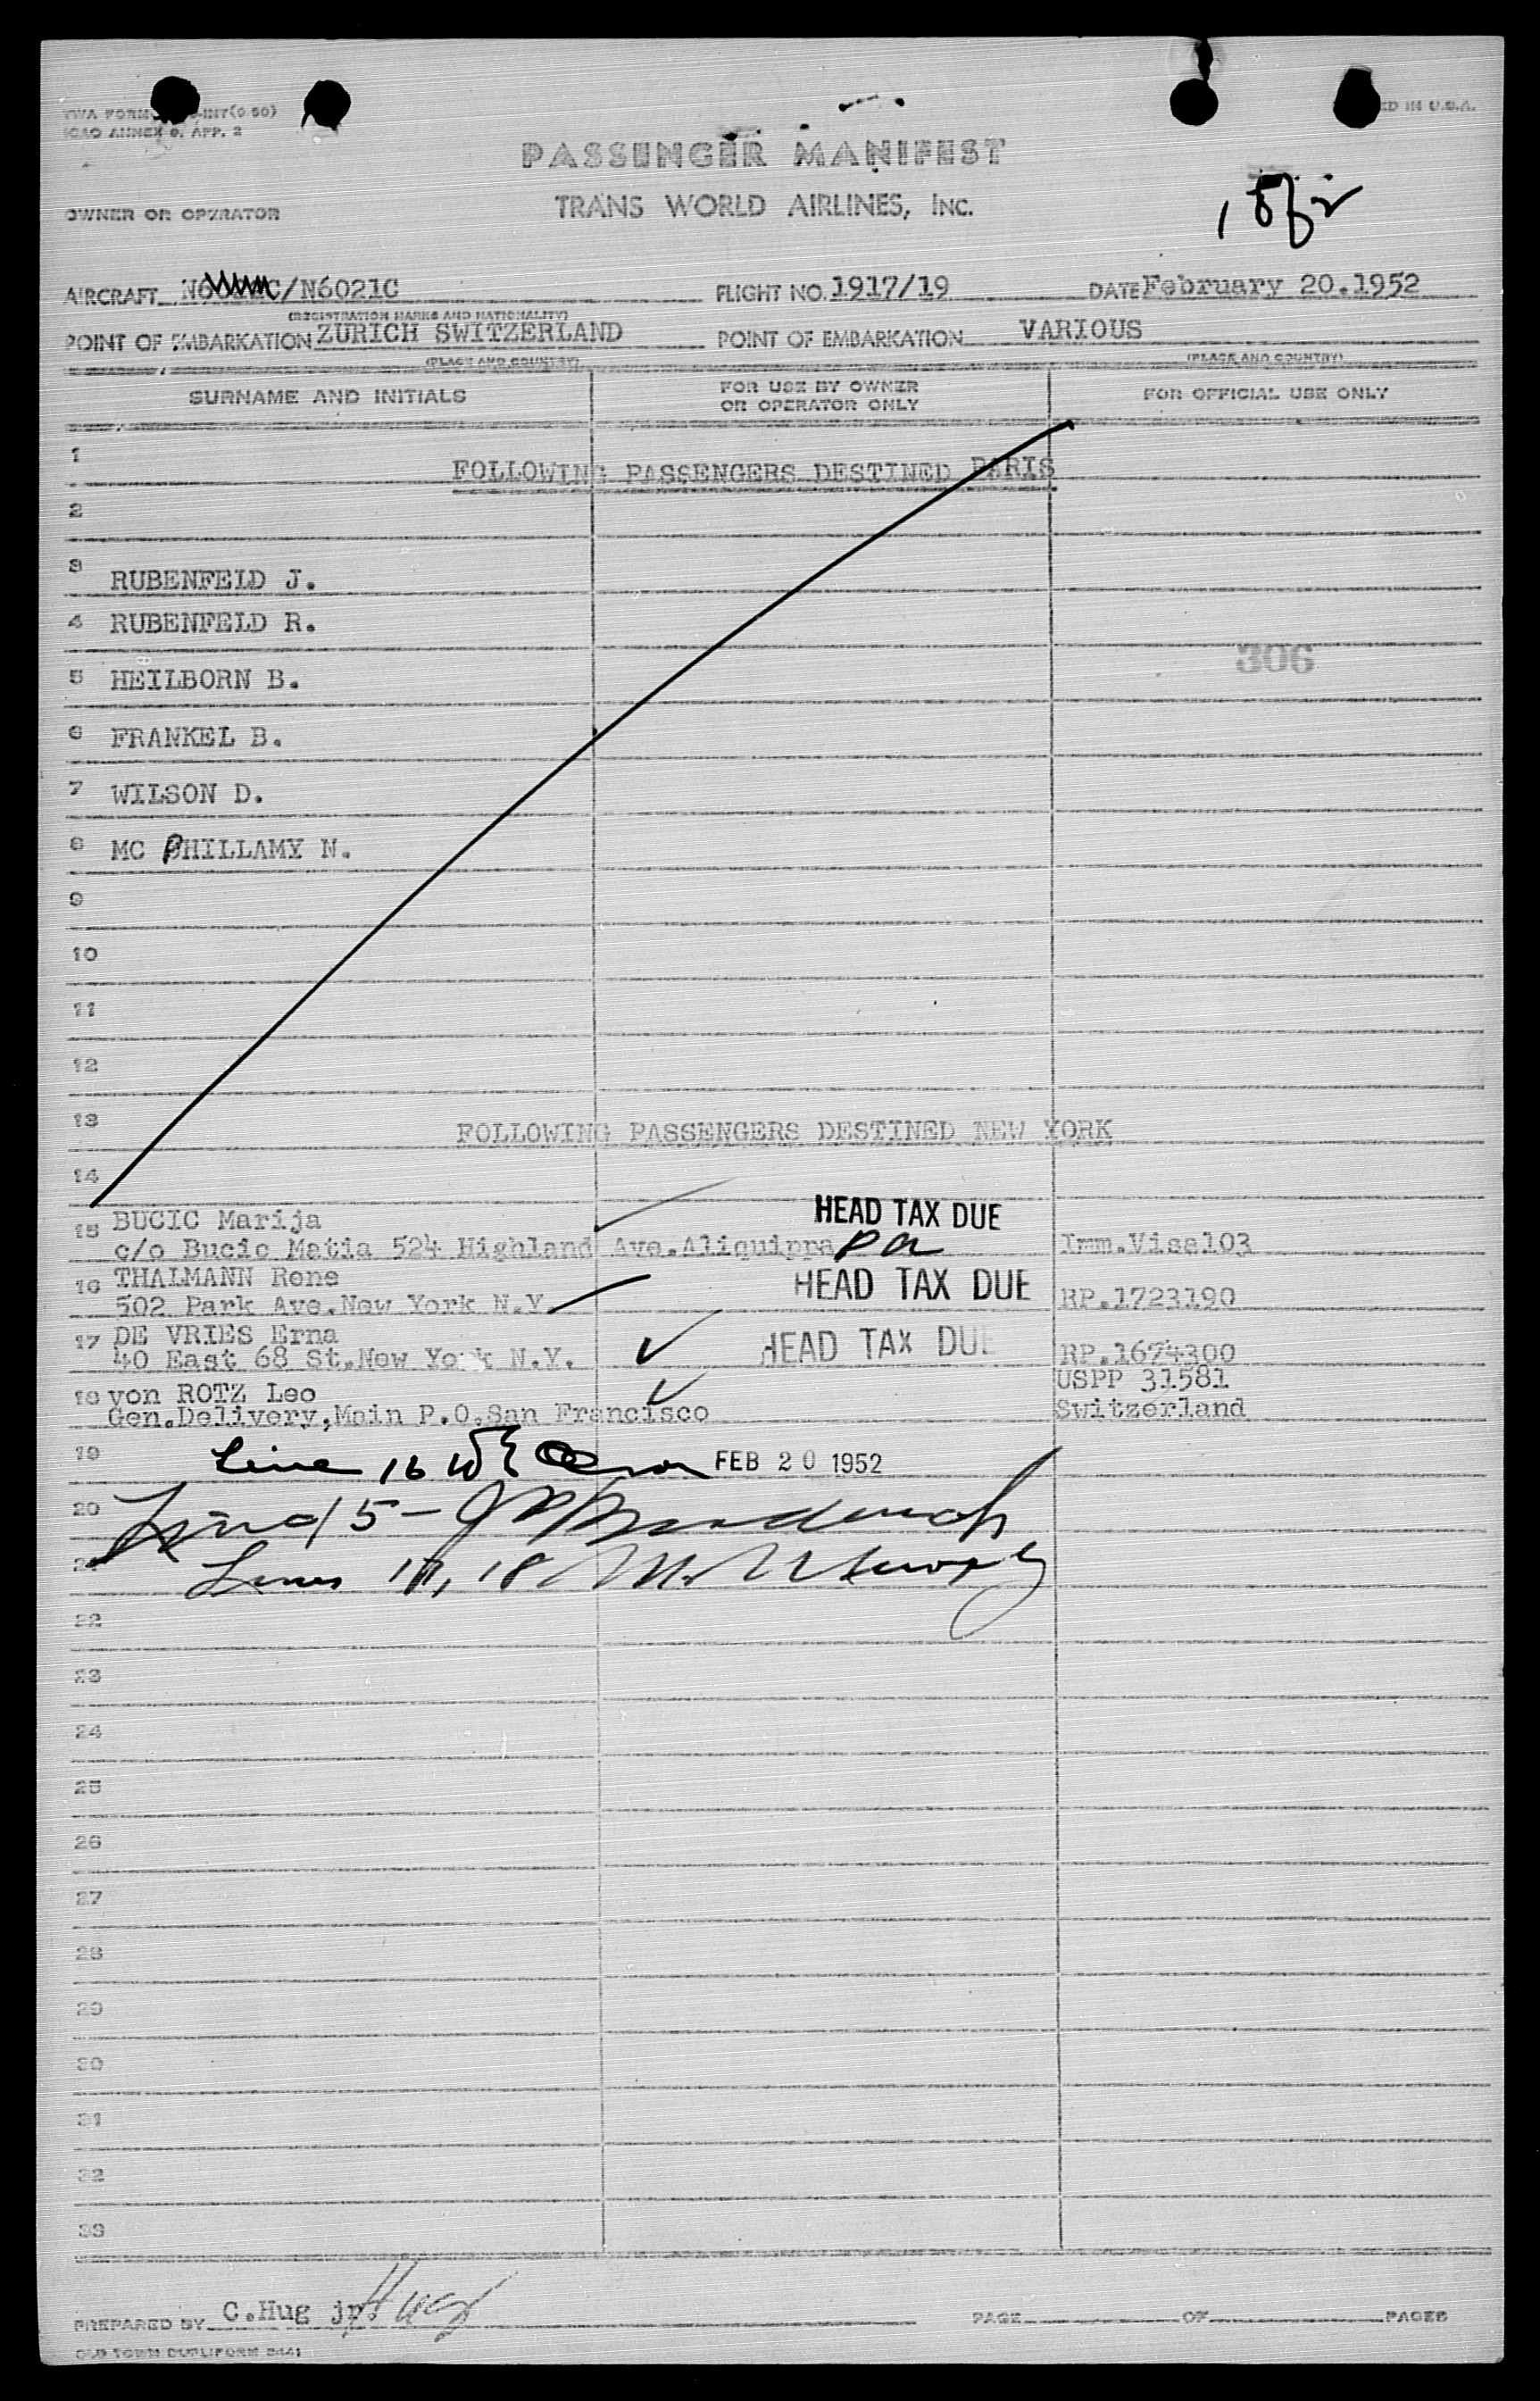 TWA FORM -INT(6 50)
ICAO ANNEX 9. APP. 2
ED IN U.S.A.
PASSENGER MANIFEST
OWNER OR OPERATOR
TRANS WORLD AIRLINES, INC.
1 of 2
AIRCRAFT N6 C/N6021C FLIGHT NO. 1917/19 DATE February 20.1952
(REGISTRATION MARKS AND NATIONALITY)
POINT OF EMBARKATION ZURICH SWITZERLAND POINT OF EMBARKATION VARIOUS
(PLACE AND COUNTRY) (PLACE AND COUNTRY)
SURNAME AND INITIALS FOR USE BY OWNER OR OPERATOR ONLY FOR OFFICIAL USE ONLY
1
FOLLOWING PASSENGERS DESTINED PARIS
2
3 RUBENFELD J.
4 RUBENFELD R.
306
5 HEILBORN B.
6 FRANKEL B.
7 WILSON D.
8 MC PHILLAMY N.
9
10
11
12
13
FOLLOWING PASSENGERS DESTINED NEW YORK
14
15 BUCIC Marija HEAD TAX DUE
c/o Bucic Matia 524 Highland Ave.Aliquippa Pa Imm.Visa103
16 THALMANN Rene HEAD TAX DUE
502 Park Ave.New York N.Y. RP.1723190
17 DE VRIES Erna HEAD TAX DUE
40 East 68 St.New York N.Y. RP.1674300
18 von ROTZ Leo USPP 31581
Gen.Delivery,Main P.O.San Francisco Switzerland
19 Line 16 FEB 20 1952
20 Line 15 -
21 Lines 17, 18
22
23
24
25
26
27
28
29
30
31
32
33
PREPARED BY C.Hug jr. Hug PAGE OF PAGES
OLD TOWN DUPLIFORM